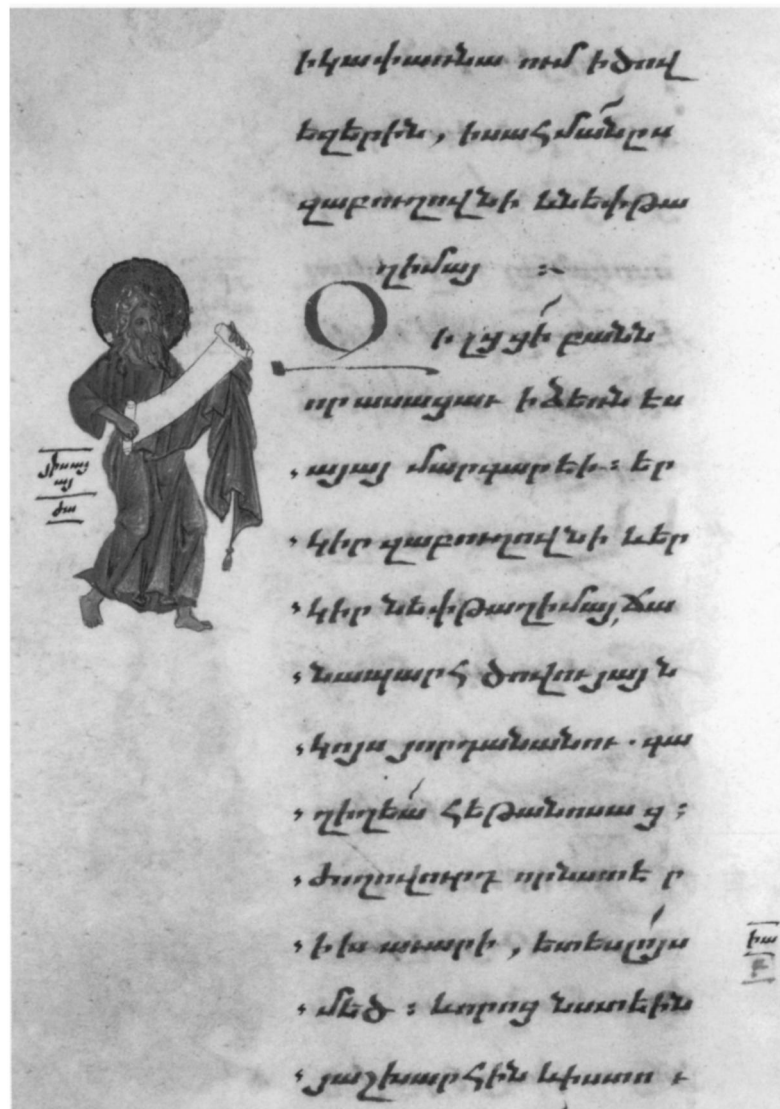 ի կափառնաում ի ծով
եզերին, ի սահմանըս
զաբուղովնի և նեփթա
ղիմայ ։~
Օ
ի լցցի բանն
որ ասացաւ ի ձեռն ես
այայ մարգարէի ։ եր
կիր զաբուղովնի և եր
կիր նեփթաղիմայ, ճա
նապարհ ծովու յայն
կոյս յորդանանու. գա
ղիղեա հեթանոսաց ։
ժողովուրդ որ նստէր
ի խաւարի, ետես լոյս
մեծ ։ և որոց նստէին
յաշխարհին և ի ստու